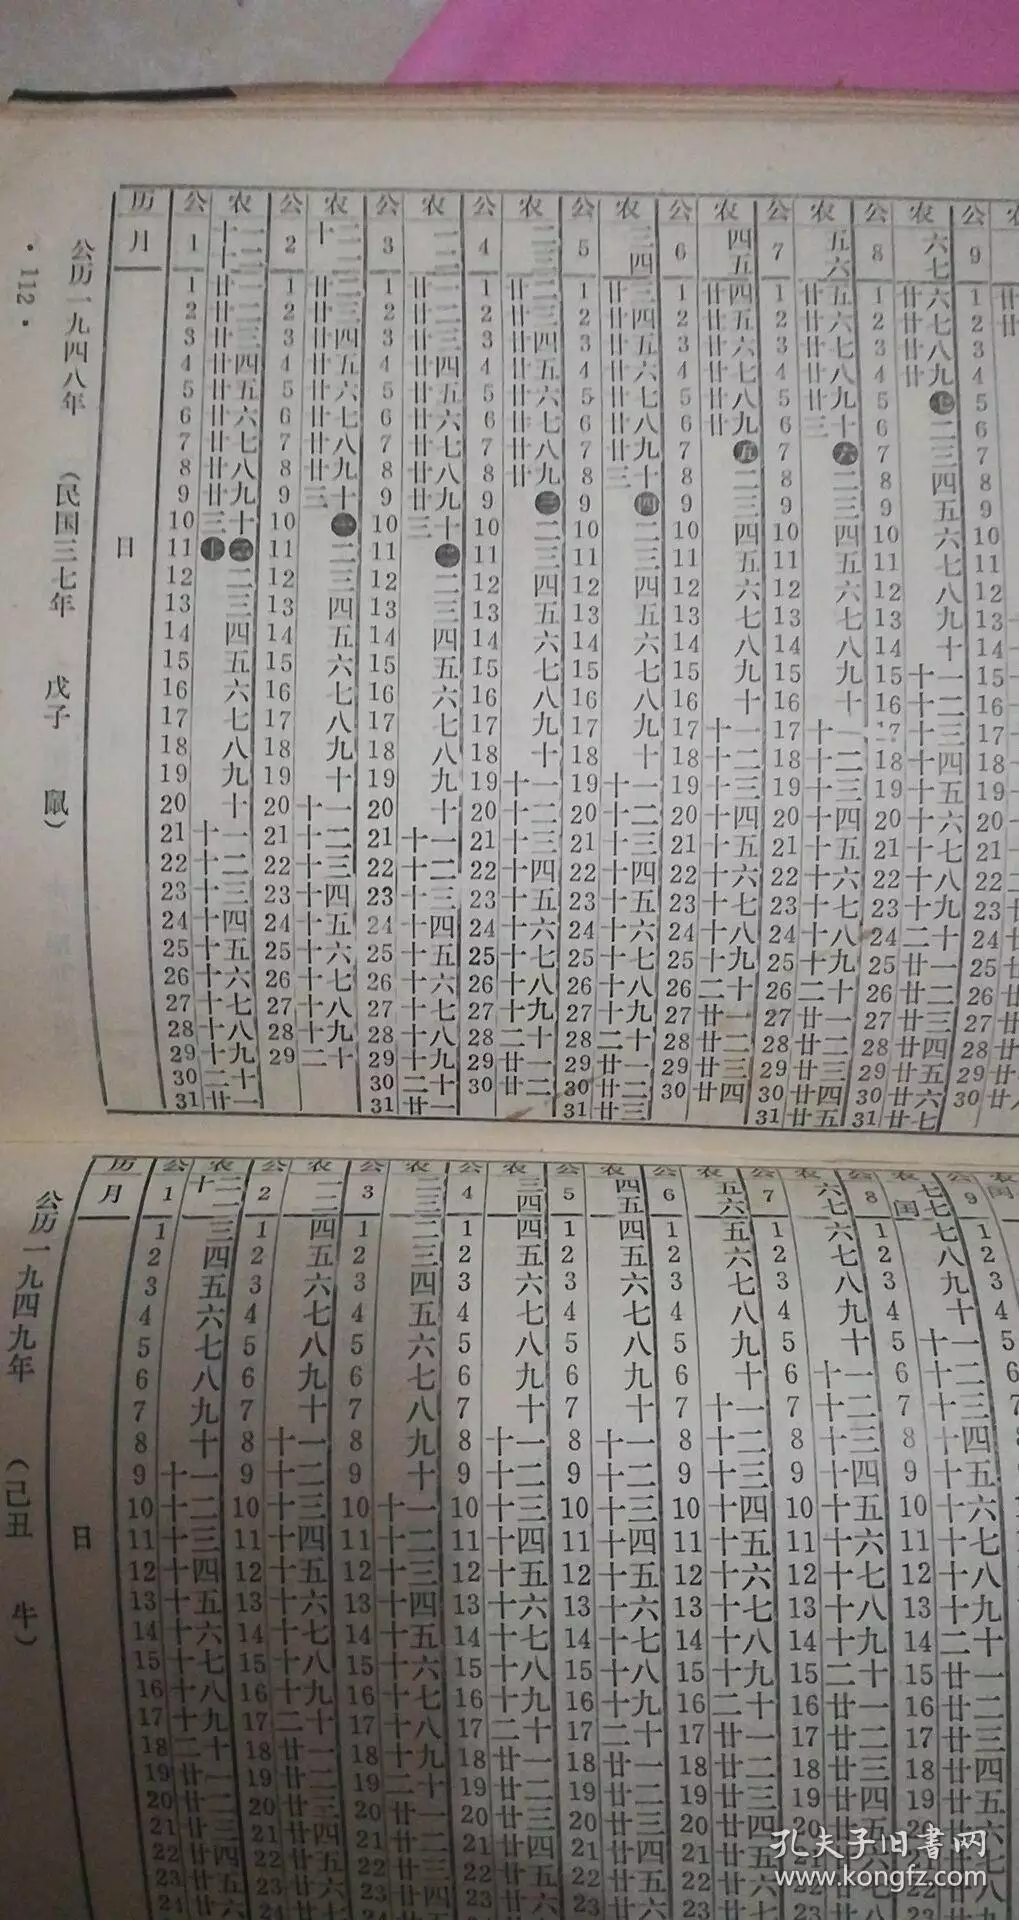 历 公 农 公 农 公 农 公 农 公 农 公 农 公 农 公 农 公
月 1 十一 十二 2 十二 一 3 一 二 4 二 三 5 三 四 6 四 五 7 五 六 8 六 七 9
日
1 廿一 1 廿二 1 廿一 1 廿二 1 廿三 1 廿四 1 廿五 1 廿六 1
2 廿二 2 廿三 2 廿二 2 廿三 2 廿四 2 廿五 2 廿六 2 廿七 2
3 廿三 3 廿四 3 廿三 3 廿四 3 廿五 3 廿六 3 廿七 3 廿八 3
4 廿四 4 廿五 4 廿四 4 廿五 4 廿六 4 廿七 4 廿八 4 廿九 4
5 廿五 5 廿六 5 廿五 5 廿六 5 廿七 5 廿八 5 廿九 5 七 5
6 廿六 6 廿七 6 廿六 6 廿七 6 廿八 6 廿九 6 三十 6 二 6
7 廿七 7 廿八 7 廿七 7 廿八 7 廿九 7 五 7 六 7 三 7
8 廿八 8 廿九 8 廿八 8 廿九 8 三十 8 二 8 二 8 四 8
9 廿九 9 三十 9 廿九 9 三 9 四 9 三 9 三 9 五 9
10 三十 10 一 10 三十 10 二 10 二 10 四 10 四 10 六 10
11 十二 11 二 11 二 11 三 11 三 11 五 11 五 11 七 11
12 二 12 三 12 二 12 四 12 四 12 六 12 六 12 八 12
13 三 13 四 13 三 13 五 13 五 13 七 13 七 13 九 13
14 四 14 五 14 四 14 六 14 六 14 八 14 八 14 十 14
15 五 15 六 15 五 15 七 15 七 15 九 15 九 15 十一 15
16 六 16 七 16 六 16 八 16 八 16 十 16 十 16 十二 16
17 七 17 八 17 七 17 九 17 九 17 十一 17 十一 17 十三 17
18 八 18 九 18 八 18 十 18 十 18 十二 18 十二 18 十四 18
19 九 19 十 19 九 19 十一 19 十一 19 十三 19 十三 19 十五 19
20 十 20 十一 20 十 20 十二 20 十二 20 十四 20 十四 20 十六 20
21 十一 21 十二 21 十一 21 十三 21 十三 21 十五 21 十五 21 十七 21
22 十二 22 十三 22 十二 22 十四 22 十四 22 十六 22 十六 22 十八 22
23 十三 23 十四 23 十三 23 十五 23 十五 23 十七 23 十七 23 十九 23
24 十四 24 十五 24 十四 24 十六 24 十六 24 十八 24 十八 24 二十 24
25 十五 25 十六 25 十五 25 十七 25 十七 25 十九 25 十九 25 廿一 25
26 十六 26 十七 26 十六 26 十八 26 十八 26 二十 26 二十 26 廿二 26
27 十七 27 十八 27 十七 27 十九 27 十九 27 廿一 27 廿一 27 廿三 27
28 十八 28 十九 28 十八 28 二十 28 二十 28 廿二 28 廿二 28 廿四 28
29 十九 29 二十 29 十九 29 廿一 29 廿一 29 廿三 29 廿三 29 廿五 29
30 二十 30 二十 30 廿二 30 廿二 30 廿四 30 廿四 30 廿六 30
31 廿一 31 廿一 31 廿三 31 廿五 31 廿七
公历一九四八年 (民国三七年 戊子 鼠)
·112·
历 公 农 公 农 公 农 公 农 公 农 公 农 公 农 公 农 公
月 1 十二 2 3 4 三 四 5 四 五 6 五 六 7 六 七 8 七 闰七 9
日
1 三 1 四 1 二 1 四 1 四 1 五 1 六 1 七 1
2 四 2 五 2 三 2 五 2 五 2 六 2 七 2 八 2
3 五 3 六 3 四 3 六 3 六 3 七 3 八 3 九 3
4 六 4 七 4 五 4 七 4 七 4 八 4 九 4 十 4
5 七 5 八 5 六 5 八 5 八 5 九 5 十 5 十一 5
6 八 6 九 6 七 6 九 6 九 6 十 6 十一 6 十二 6
7 九 7 十 7 八 7 十 7 十 7 十一 7 十二 7 十三 7
8 十 8 十一 8 九 8 十一 8 十一 8 十二 8 十三 8 十四
9 十一 9 十二 9 十 9 十二 9 十二 9 十三 9 十四 9 十五
10 十二 10 十三 10 十一 10 十三 10 十三 10 十四 10 十五 10 十六
11 十三 11 十四 11 十二 11 十四 11 十四 11 十五 11 十六 11 十七
12 十四 12 十五 12 十三 12 十五 12 十五 12 十六 12 十七 12 十八
13 十五 13 十六 13 十四 13 十六 13 十六 13 十七 13 十八 13 十九
14 十六 14 十七 14 十五 14 十七 14 十七 14 十八 14 十九 14 二十
15 十七 15 十八 15 十六 15 十八 15 十八 15 十九 15 二十 15 廿一
16 十八 16 十九 16 十七 16 十九 16 十九 16 二十 16 廿一 16 廿二
17 十九 17 二十 17 十八 17 二十 17 二十 17 廿一 17 廿二 17 廿三
18 二十 18 廿一 18 十九 18 廿一 18 廿一 18 廿二 18 廿三 18 廿四
19 廿一 19 廿二 19 二十 19 廿二 19 廿二 19 廿三 19 廿四 19 廿五
20 廿二 20 廿三 20 廿一 20 廿三 20 廿三 20 廿四 20 廿五 20 廿六
21 廿三 21 廿四 21 廿二 21 廿四 21 廿四 21 廿五
22 廿四 22 廿五 22 廿三 22 廿五 22 廿五 22 廿六
23 廿五 23 廿六 23 廿四 23 廿六
公历一九四九年 (己丑 牛)
孔夫子旧书网
www.kongfz.com